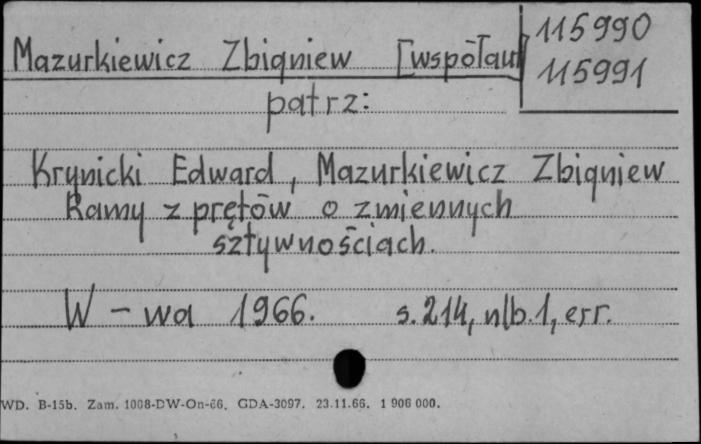 115990
Mazurkiewicz Zbigniew [współaut]
115991
patrz:
Krynicki Edward, Mazurkiewicz Zbigniew
Ramy z prętów o zmiennych
sztywnościach.
W-wa 1966. s. 214, nlb. 1, err.
WD. B-15b. Zam. 1008-DW-On-66. GDA-3097. 23.11.66. 1 906 000.